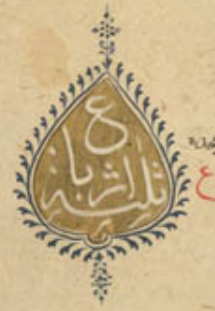 ثلثة ارباع